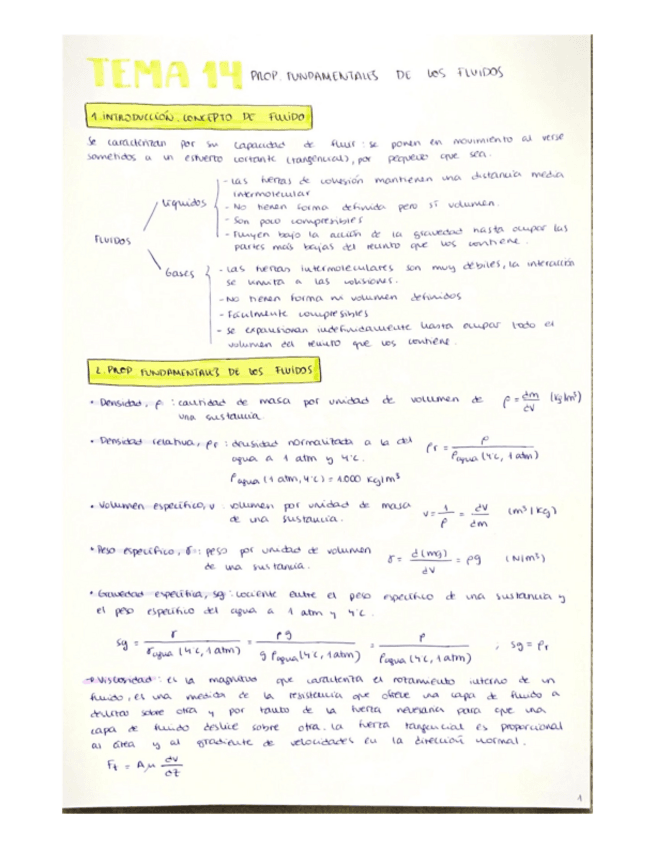 TEMA 14 PROP. FUNDAMENTALES DE LOS FLUIDOS
1. INTRODUCCIÓN. CONCEPTO DE FLUIDO
Se caracterizan por su capacidad de fluir: se ponen en movimiento al verse
sometidos a un esfuerzo cortante (tangencial), por pequeño que sea.
FLUIDOS
Líquidos
- Las fuerzas de cohesión mantienen una distancia media
intermolecular
- No tienen forma definida pero sí volumen.
- Son poco compresibles
- Fluyen bajo la acción de la gravedad hasta ocupar las
partes más bajas del recinto que los contiene.
Gases
- Las fuerzas intermoleculares son muy débiles, la interacción
se limita a las colisiones.
- No tienen forma ni volumen definidos
- Fácilmente compresibles
- Se expansionan indefinidamente hasta ocupar todo el
volumen del recinto que los contiene.
2. PROP FUNDAMENTALES DE LOS FLUIDOS
• Densidad, ρ : cantidad de masa por unidad de volumen de ρ = dm/dV (kg/m³)
una sustancia.
• Densidad relativa, ρr : densidad normalizada a la del ρr = ρ / ρagua (4ºC, 1atm)
agua a 1 atm y 4ºC.
ρagua (1 atm, 4ºC) = 1.000 kg/m³
• Volumen específico, v : volumen por unidad de masa v = 1/ρ = dV/dm (m³/kg)
de una sustancia.
• Peso específico, γ : peso por unidad de volumen γ = d(mg)/dV = ρg (N/m³)
de una sustancia.
• Gravedad específica, sg : cociente entre el peso específico de una sustancia y
el peso específico del agua a 1 atm y 4ºC.
sg = γ / γagua (4ºC, 1atm) = ρg / g ρagua (4ºC, 1atm) = ρ / ρagua (4ºC, 1atm) ; sg = ρr
• Viscosidad : es la magnitud que caracteriza el rozamiento interno de un
fluido, es una medida de la resistencia que ofrece una capa de fluido a
deslizar sobre otra y por tanto de la fuerza necesaria para que una
capa de fluido deslice sobre otra. La fuerza tangencial es proporcional
al área y al gradiente de velocidades en la dirección normal.
Ft = Aμ dv/dz
1